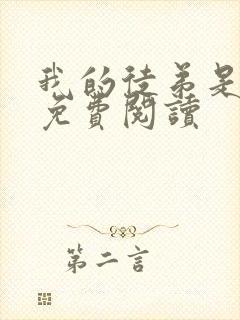 我的徒弟是
免費閱讀
第二言